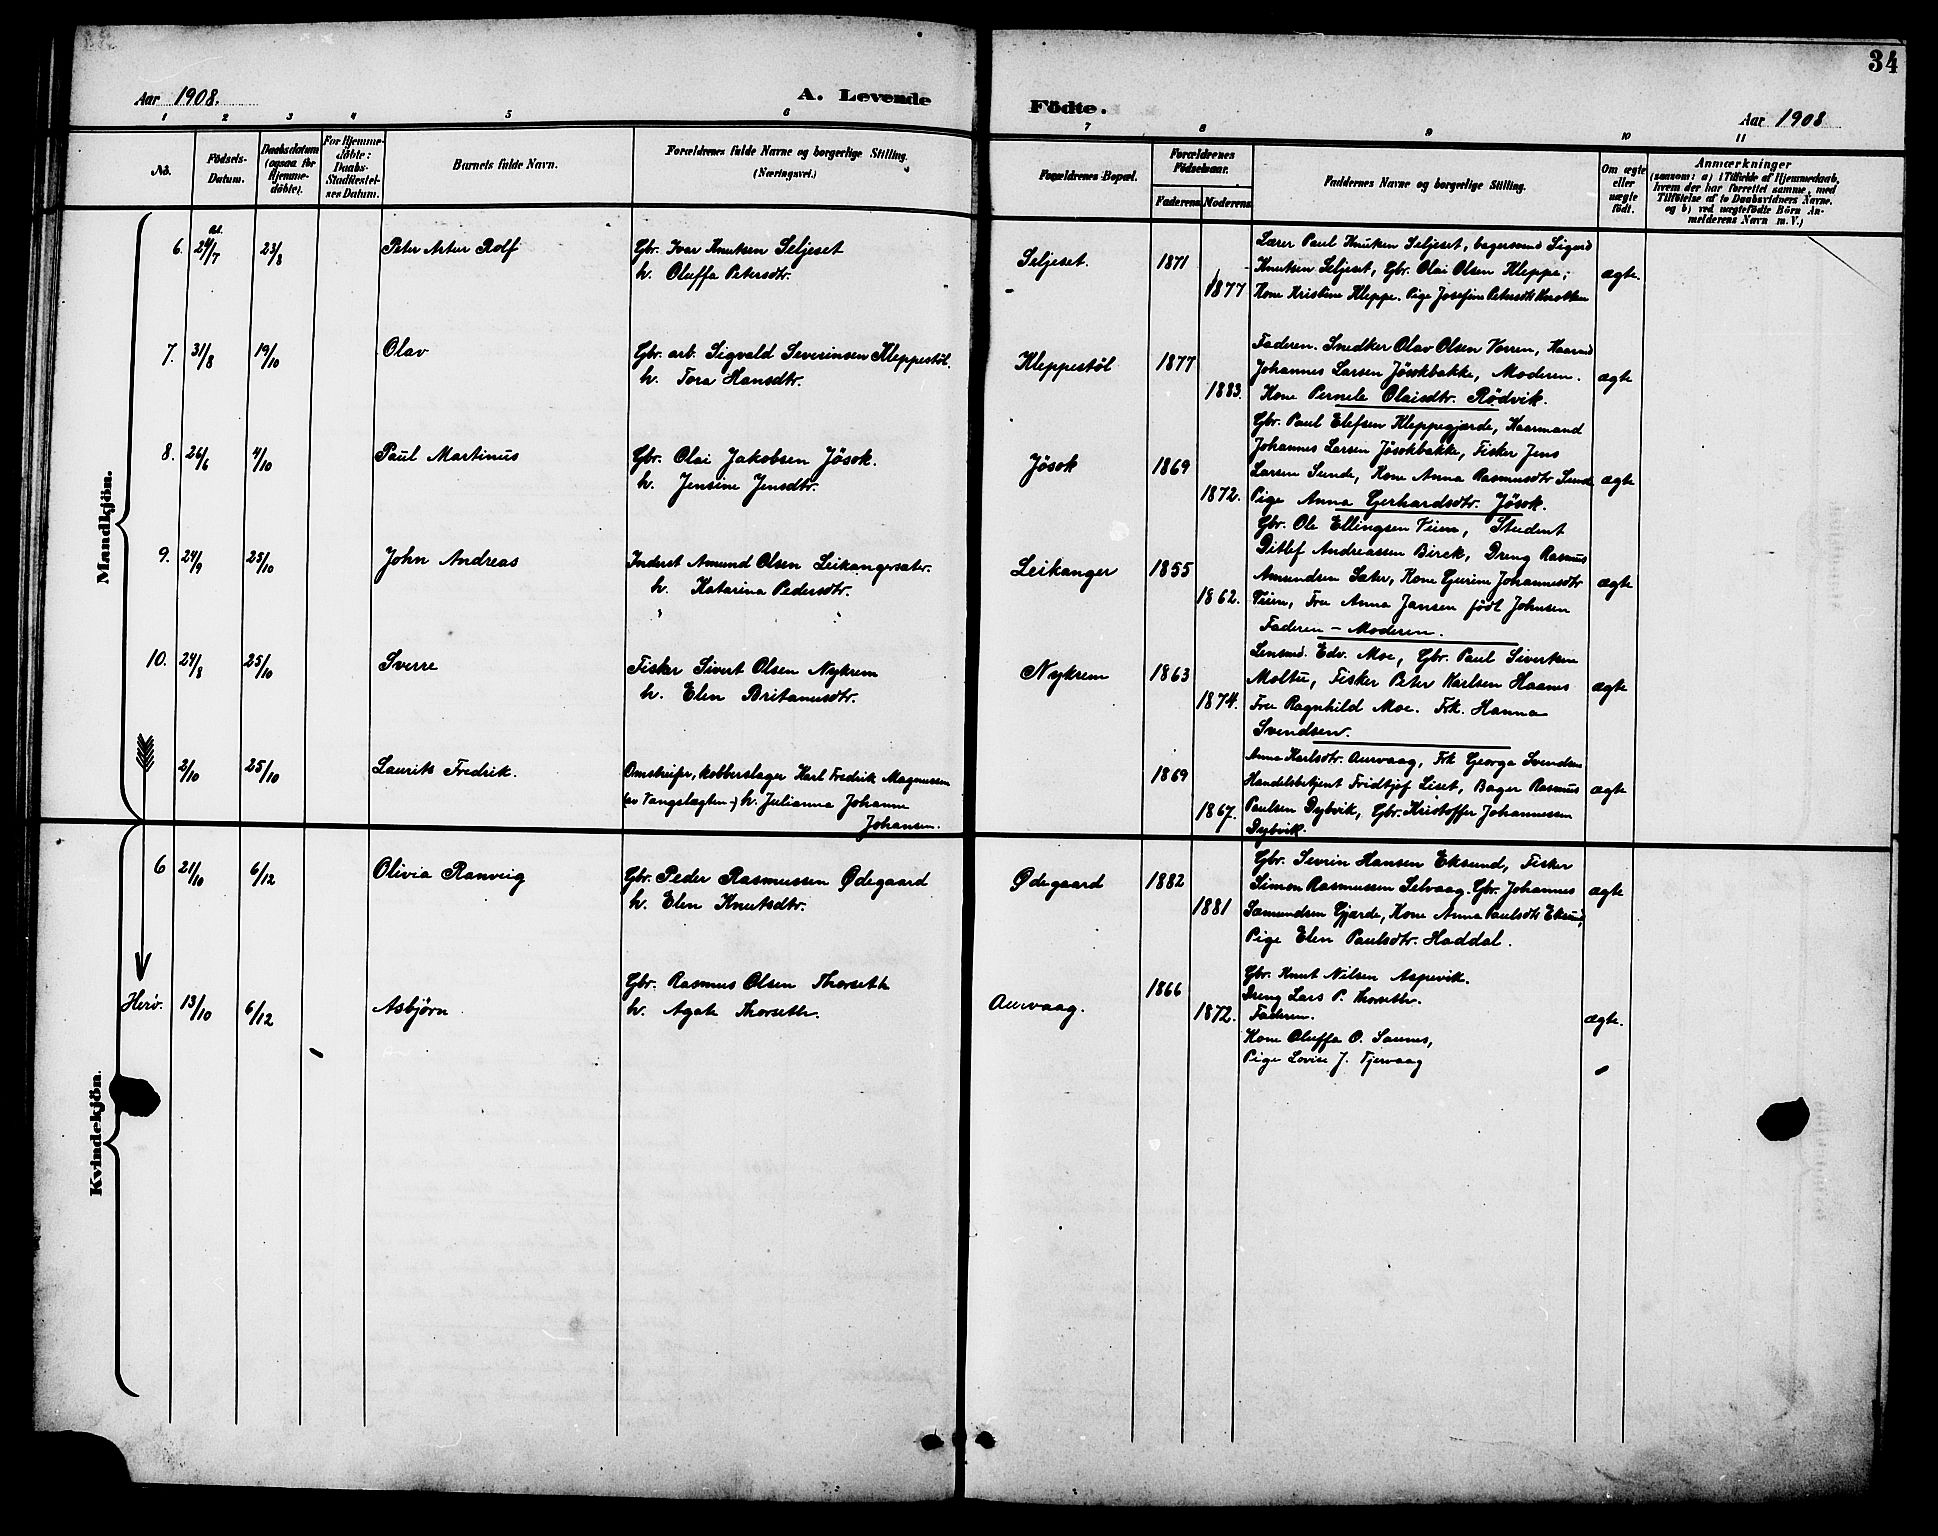 34
Aar 1908.
A. Levende
Födte.
Aar 1908
1 2 3 4 5 6 7 8 9 10 11
No.
Födsels-
Datum.
Daabsdatum
(ogsaa for
Hjemme-
döbte).
For Hjemme-
döbte:
Daabs-
Stadfæstel-
ses Datum.
Barnets fulde Navn.
Forældrenes fulde Navne og borgerlige Stilling.
(Næringsvei.)
Forældrenes Bopæl.
Forældrenes
Födselsaar.
Faderens Moderens
Faddernes Navne og borgerlige Stilling.
Om ægte
eller
uægte
födt.
Anmærkninger
(saasom: a) i Tilfælde af Hjemmedaab,
hvem der har forrettet samme, med
Tilföielse af to Daabsvidners Navne.
og b) ved uægtefödte Börn An-
melderens Navn m. V.)
Mandkjön.
6. 24/7 23/8 Peter Artur Rolf
Gbr. Ivar Knutsen Seljeset
h. Oluffa Petersdtr.
Seljeset. 1871
1877
Lærer Paul Knutsen Seljeset, bagersvend Sigvid
Knutsen Seljeset, Gbr. Olai Olsen Kleppe;
Kone Kristine Kleppe. Pige Josefine Petersdtr
ægte.
7. 31/8 19/10 Olav
Gbr. arb. Sigvald Severinsen Kleppestöl.
h. Tora Hansdtr.
Kleppestöl 1877
1883.
Faderen. Snedker Olav Olsen Vorren, Kaarmd
Johannes Larsen Jösokbakke, Moderen.
Kone Pernele Olaisdtr. Rødvik.
ægte
8. 26/6 4/10 Paul Martinus
Gbr. Olai Jakobsen Jösok.
h. Jensine Jensdtr.
Jösok 1869
1872.
Gbr. Paul Elefsen Kleppegjærde, Kaarmand
Johannes Larsen Jösokbakke, Fisker Jens
Larsen Sunde, Kone Anna Rasmusdtr Sunde
Pige Anna Gerhardsdtr. Jösok.
ægte
9. 24/9 25/10 John Andreas
Inderst Amund Olsen Leikangersæter.
h. Katarina Pedersdtr.
Leikanger 1855
1862.
Gbr. Ole Ellingsen Tuen, Student
Ditlef Andreassen Birck, Dreng Rasmus
Amundsen Sæter, Kone Gurine Johannesdtr
Tuen, Fru Anna Jansen født Johnsen
Faderen - Moderen.
ægte
10. 24/8 25/10 Sverre
Fisker Sivert Olsen Nykrem
h. Elen Britanusdtr.
Nykrem 1863
1874.
Lensmd. Edv. Moe, Gbr. Paul Sivertsen
Moltu, Fisker Peter Karlsen Haanes
Fru Ragnhild Moe. Frk. Hanna
Svendsen.
ægte
2/10 25/10 Laurits Fredrik.
Omstreifer, kobberslager Karl Fredrik Magnussen
(av Vangslægten-) h. Julianna Johanne
Johansen.
1869
1867.
Anna Karlsdtr. Aurvaag, Frk Georga Svendsen
Handelsbetjent Fridtjof Liset, Bager Rasmus
Paulsen Dybvik, Gbr. Kristoffer Johannessen
Dybvik.
ægte
Kvindekjön.
6 21/10 6/12 Olivia Ranveig
Gbr. Peder Rasmussen Ødegaard
h. Elen Knutsdtr.
Ødegaard 1882
1881
Gbr. Sevrin Hansen Eksund, Fisker
Simon Rasmussen Selvaag. Gbr. Johannes
Samundsen Gjærde, Kone Anna Paulsdtr Eksund,
Pige Elen Paulsdtr. Haddal.
ægte
Herö. 13/10 6/12 Asbjørn
Gbr. Rasmus Olsen Thorseth
h. Agate Thorseth.
Aurvaag. 1866
1872.
Gbr. Knut Nilsen Aspevik.
Dreng Lars P. Thorseth.
Faderen.
Kone Oluffa O. Saunes,
Pige Lovise J. Tjervaag
ægte.